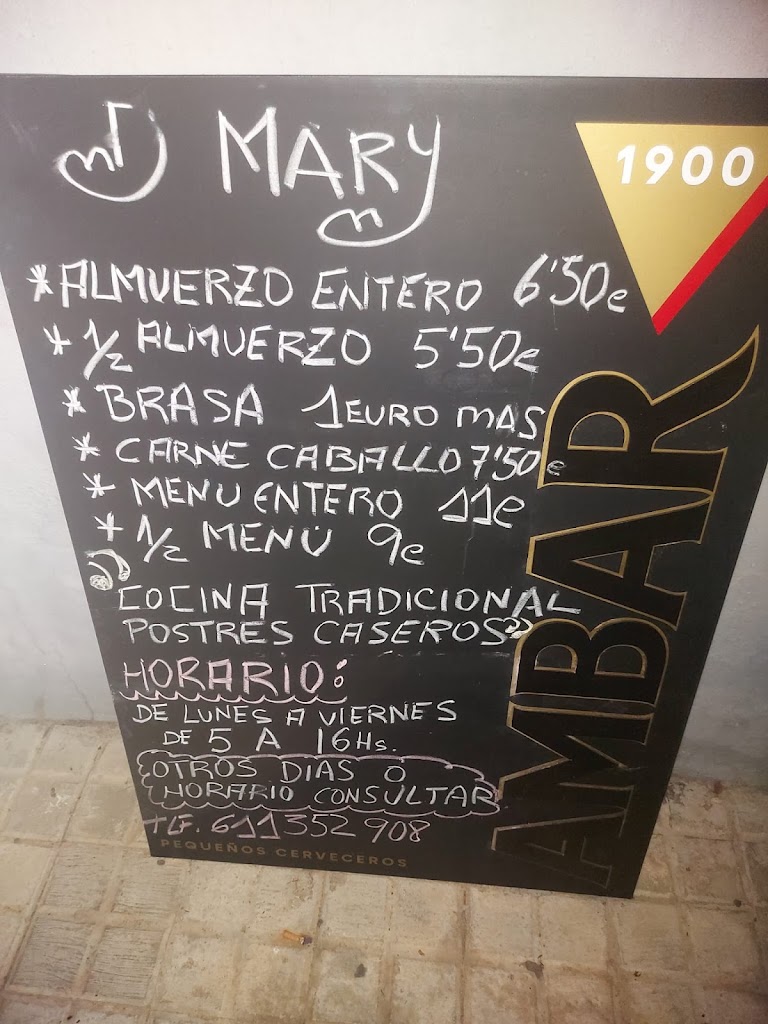 MARY
1900
* ALMUERZO ENTERO 6'50e
* 1/2 ALMUERZO 5'50e
* BRASA 1EURO MAS
* CARNE CABALLO 7'50e
* MENU ENTERO 11e
* 1/2 MENÚ 9e
"COCINA TRADICIONAL
POSTRES CASEROS"
HORARIO:
DE LUNES A VIERNES
DE 5 A 16Hs.
OTROS DIAS O
HORARIO CONSULTAR
TLF. 611352 908
PEQUEÑOS CERVECEROS
AMBAR